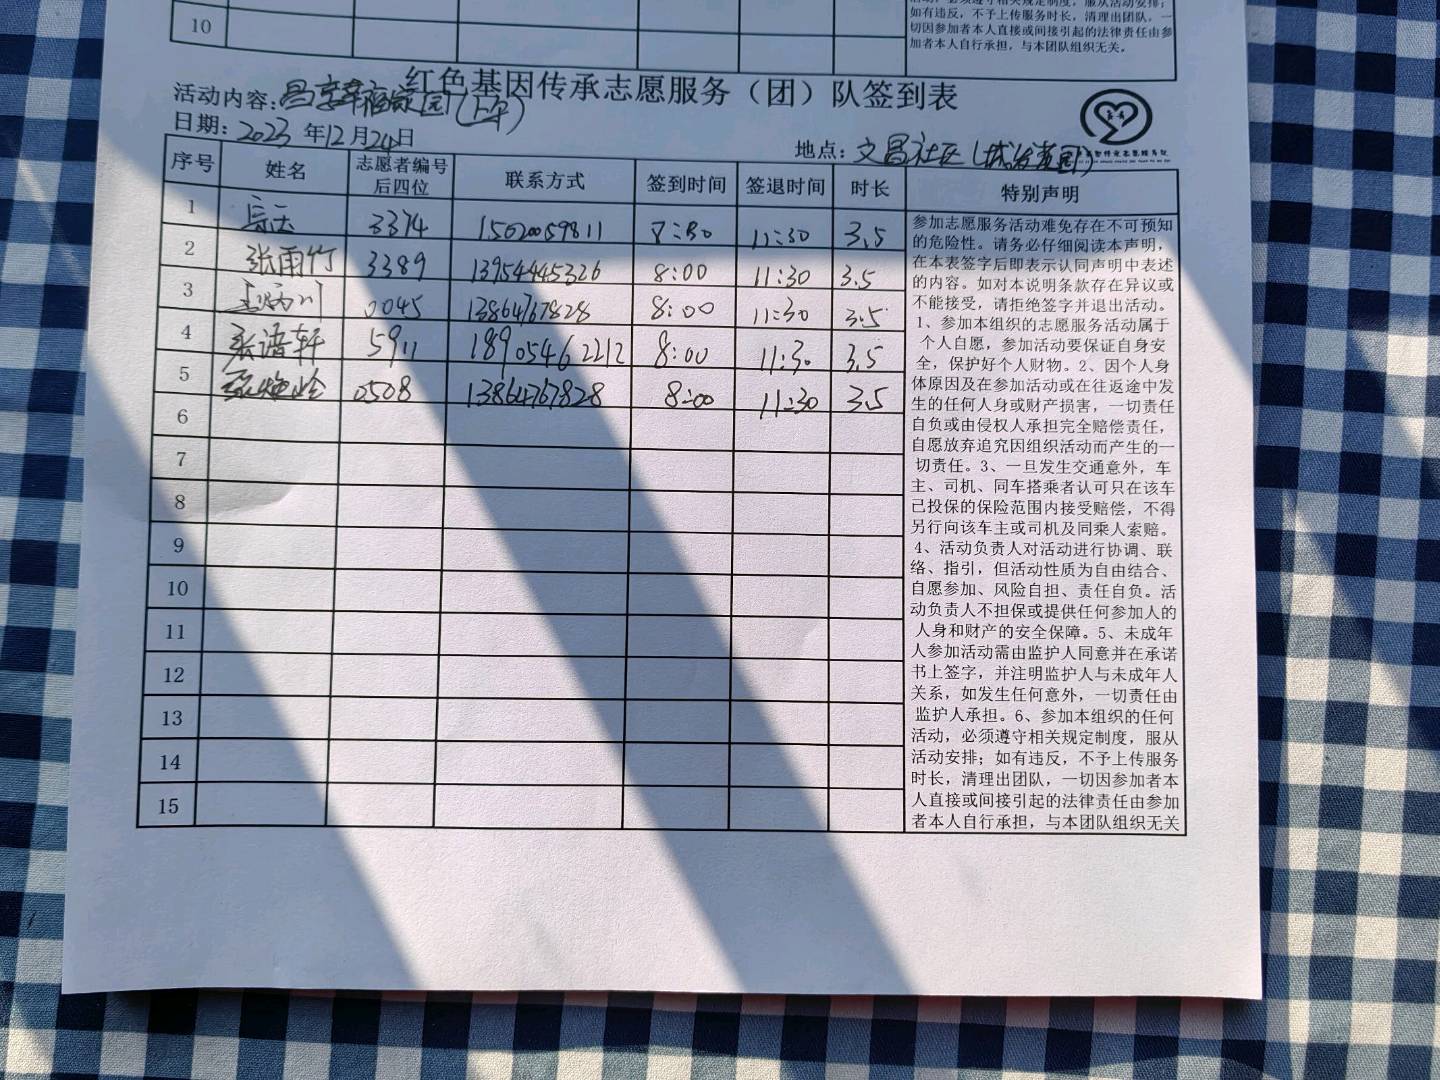 活动，必须遵守相关规定制度，服从活动安排；
如有违反，不予上传服务时长，清理出团队，一
切因参加者本人直接或间接引起的法律责任由参
加者本人自行承担，与本团队组织无关。
10
红色基因传承志愿服务（团）队签到表
活动内容：昌享幸福家园(上午)
日期：2023 年12月24日
地点：文昌社区
序号 姓名 志愿者编号后四位 联系方式 签到时间 签退时间 时长 特别声明
1 3374 15020059811 8:30 11:30 3.5
2 张雨竹 3389 13954445326 8:00 11:30 3.5
3 0045 13864767828 8:00 11:30 3.5
4 张语轩 5911 18905462212 8:00 11:30 3.5
5 0508 13864767828 8:00 11:30 3.5
6
7
8
9
10
11
12
13
14
15
参加志愿服务活动难免存在不可预知
的危险性。请务必仔细阅读本声明，
在本表签字后即表示认同声明中表述
的内容。如对本说明条款存在异议或
不能接受，请拒绝签字并退出活动。
1、参加本组织的志愿服务活动属于
个人自愿，参加活动要保证自身安
全，保护好个人财物。2、因个人身
体原因及在参加活动或在往返途中发
生的任何人身或财产损害，一切责任
自负或由侵权人承担完全赔偿责任，
自愿放弃追究因组织活动而产生的一
切责任。3、一旦发生交通意外，车
主、司机、同车搭乘者认可只在该车
已投保的保险范围内接受赔偿，不得
另行向该车主或司机及同乘人索赔。
4、活动负责人对活动进行协调、联
络、指引，但活动性质为自由结合、
自愿参加、风险自担、责任自负。活
动负责人不担保或提供任何参加人的
人身和财产的安全保障。5、未成年
人参加活动需由监护人同意并在承诺
书上签字，并注明监护人与未成年人
关系，如发生任何意外，一切责任由
监护人承担。6、参加本组织的任何
活动，必须遵守相关规定制度，服从
活动安排；如有违反，不予上传服务
时长，清理出团队，一切因参加者本
人直接或间接引起的法律责任由参加
者本人自行承担，与本团队组织无关